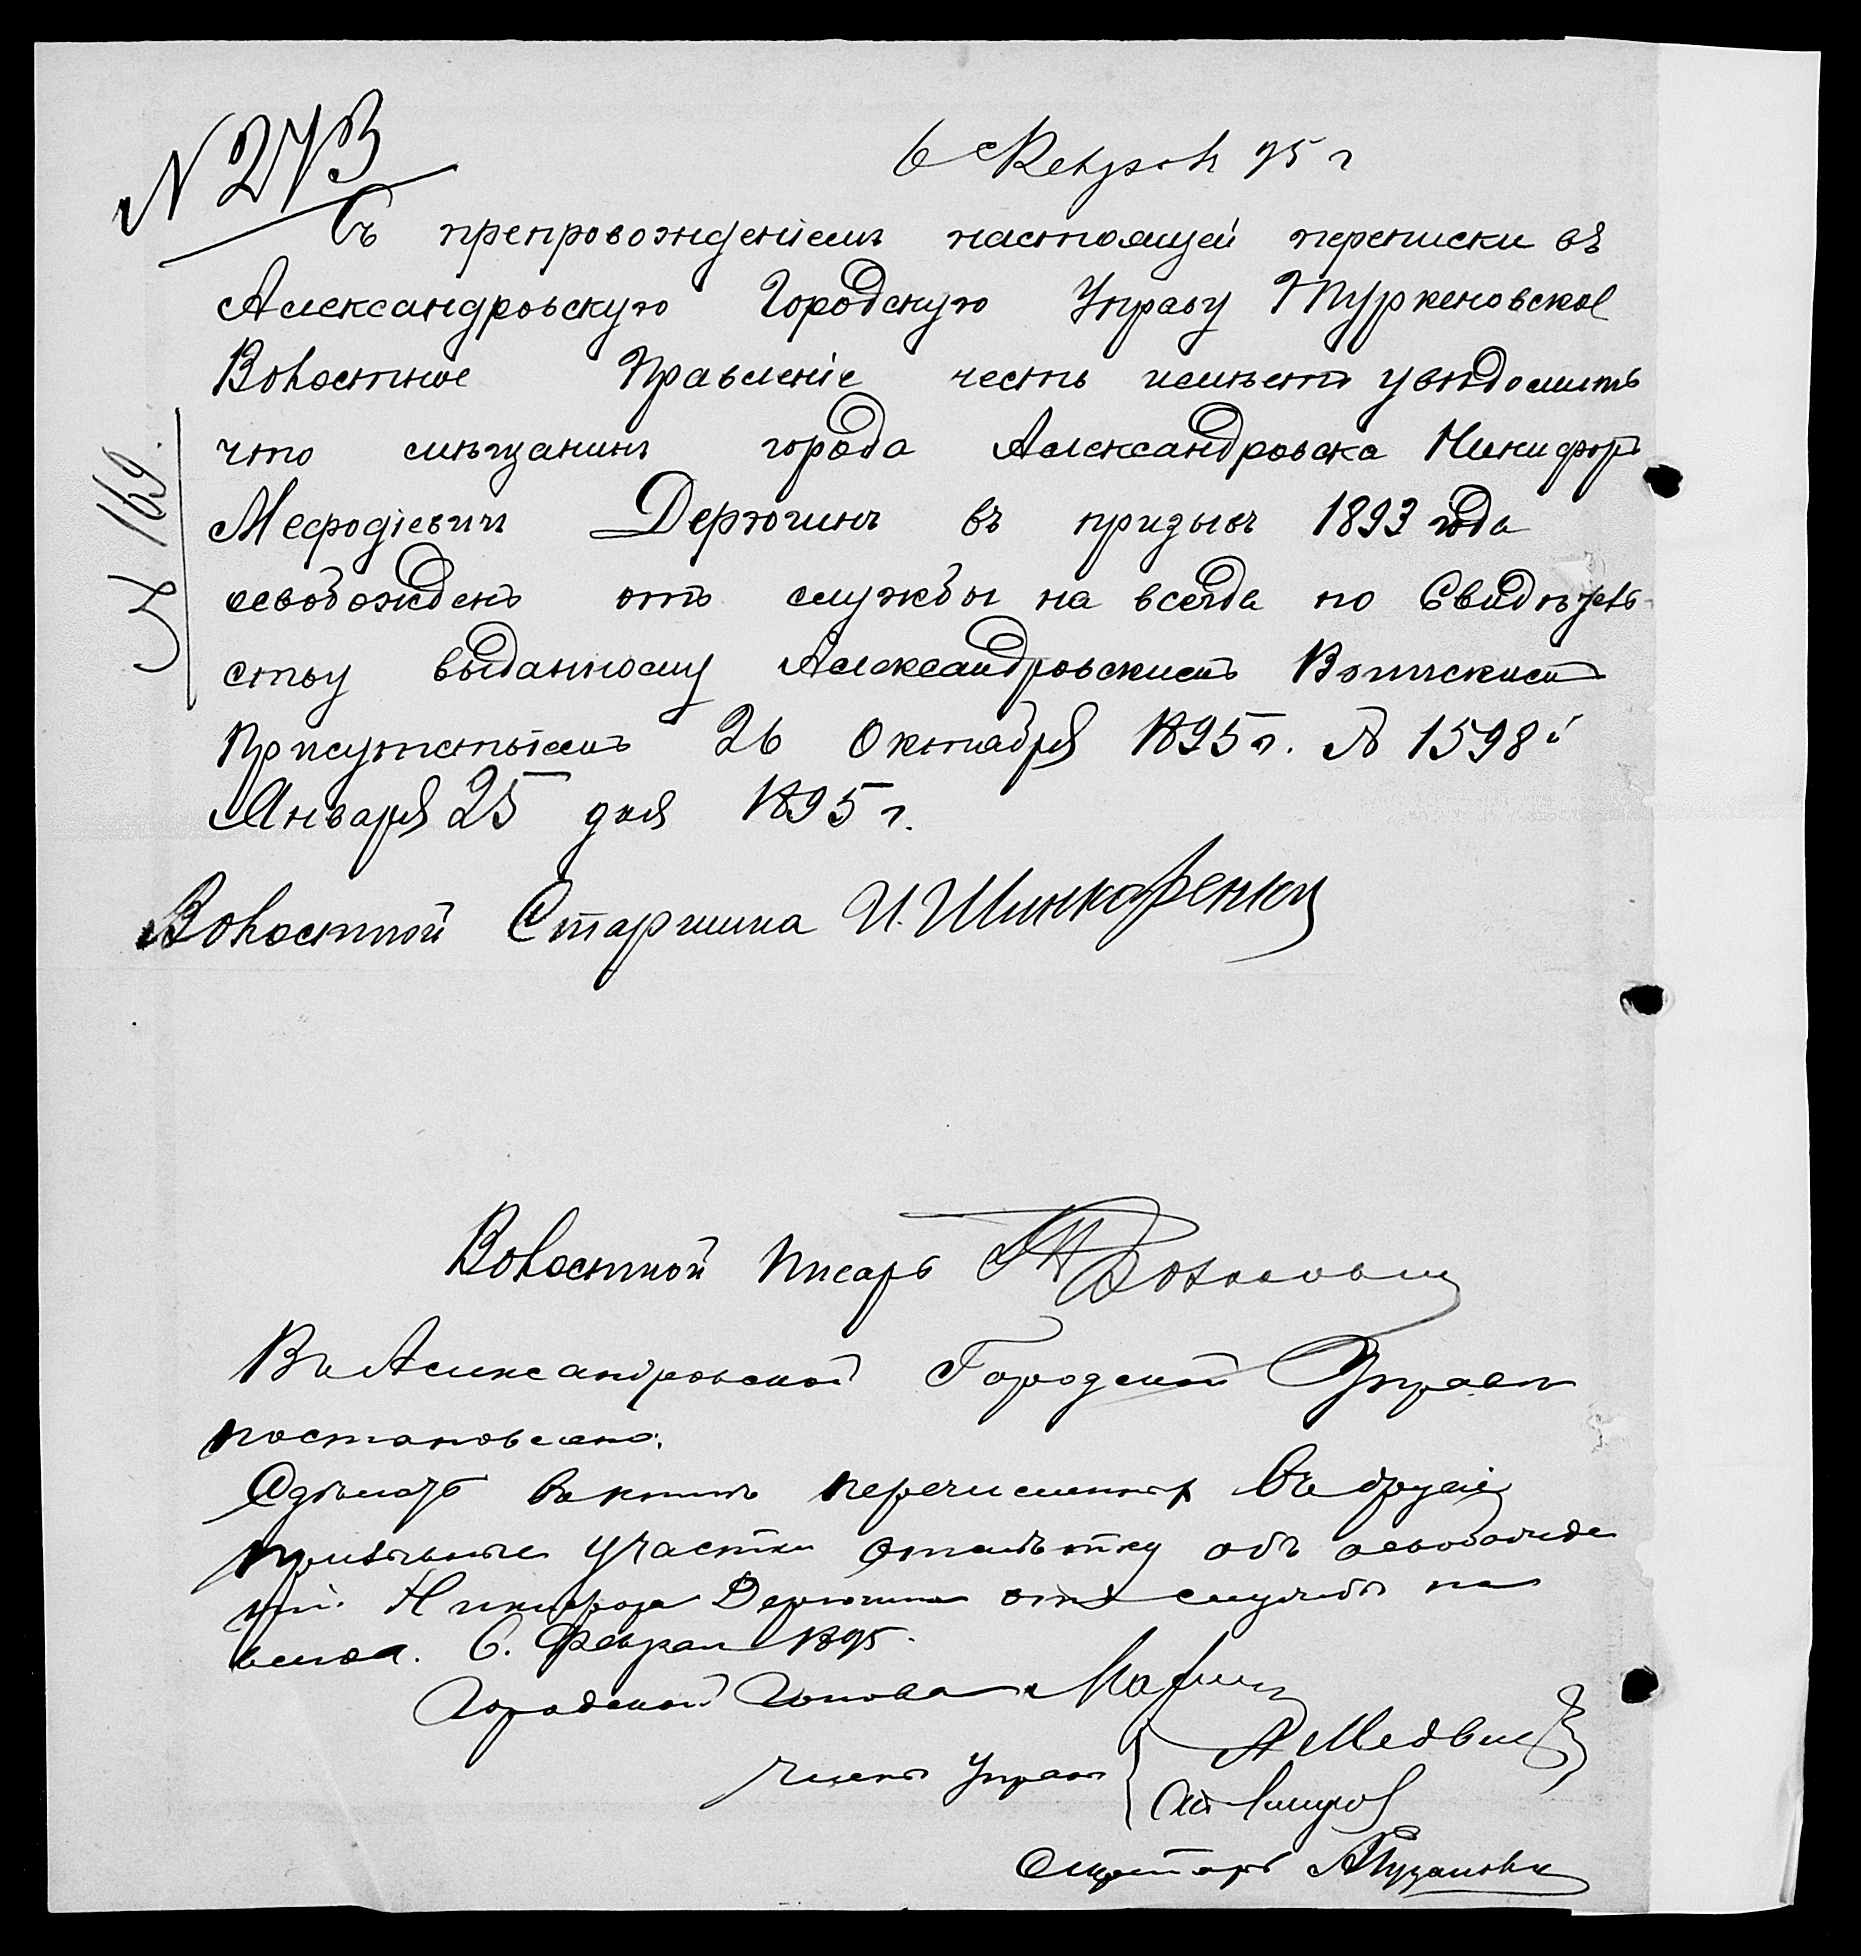 N 273
6 Февраля 95 г
Съ препровожденіемъ настоящей переписки въ
Александровскую Городскую Управу Туркеновское
Волостное Правленіе честь имѣетъ увѣдомить
что мѣщанинъ города Александровска Никифоръ
Мефодіевичъ Дерюгинъ въ призывъ 1893 года
освобожденъ отъ службы на всегда по Свидѣтель-
ству выданному Александровскимъ Воинскимъ
Присутствіемъ 26 Октября 1895 г. № 1598
Января 25 дня 1895 г.
№ 169.
Волостной Старшина И. Шинкаренко
Волостной Писарь
Въ Александровской Городской Управѣ
постановлено:
Сдѣлать въ книгѣ перечисленныхъ въ другіе
призывные участки отмѣтку объ освобожде
ніи Никифора Дерюгина отъ службы на
всегда. 6. Февраля 1895.
Городской Голова
Члены Управы { А Медвѣ
Секретарь